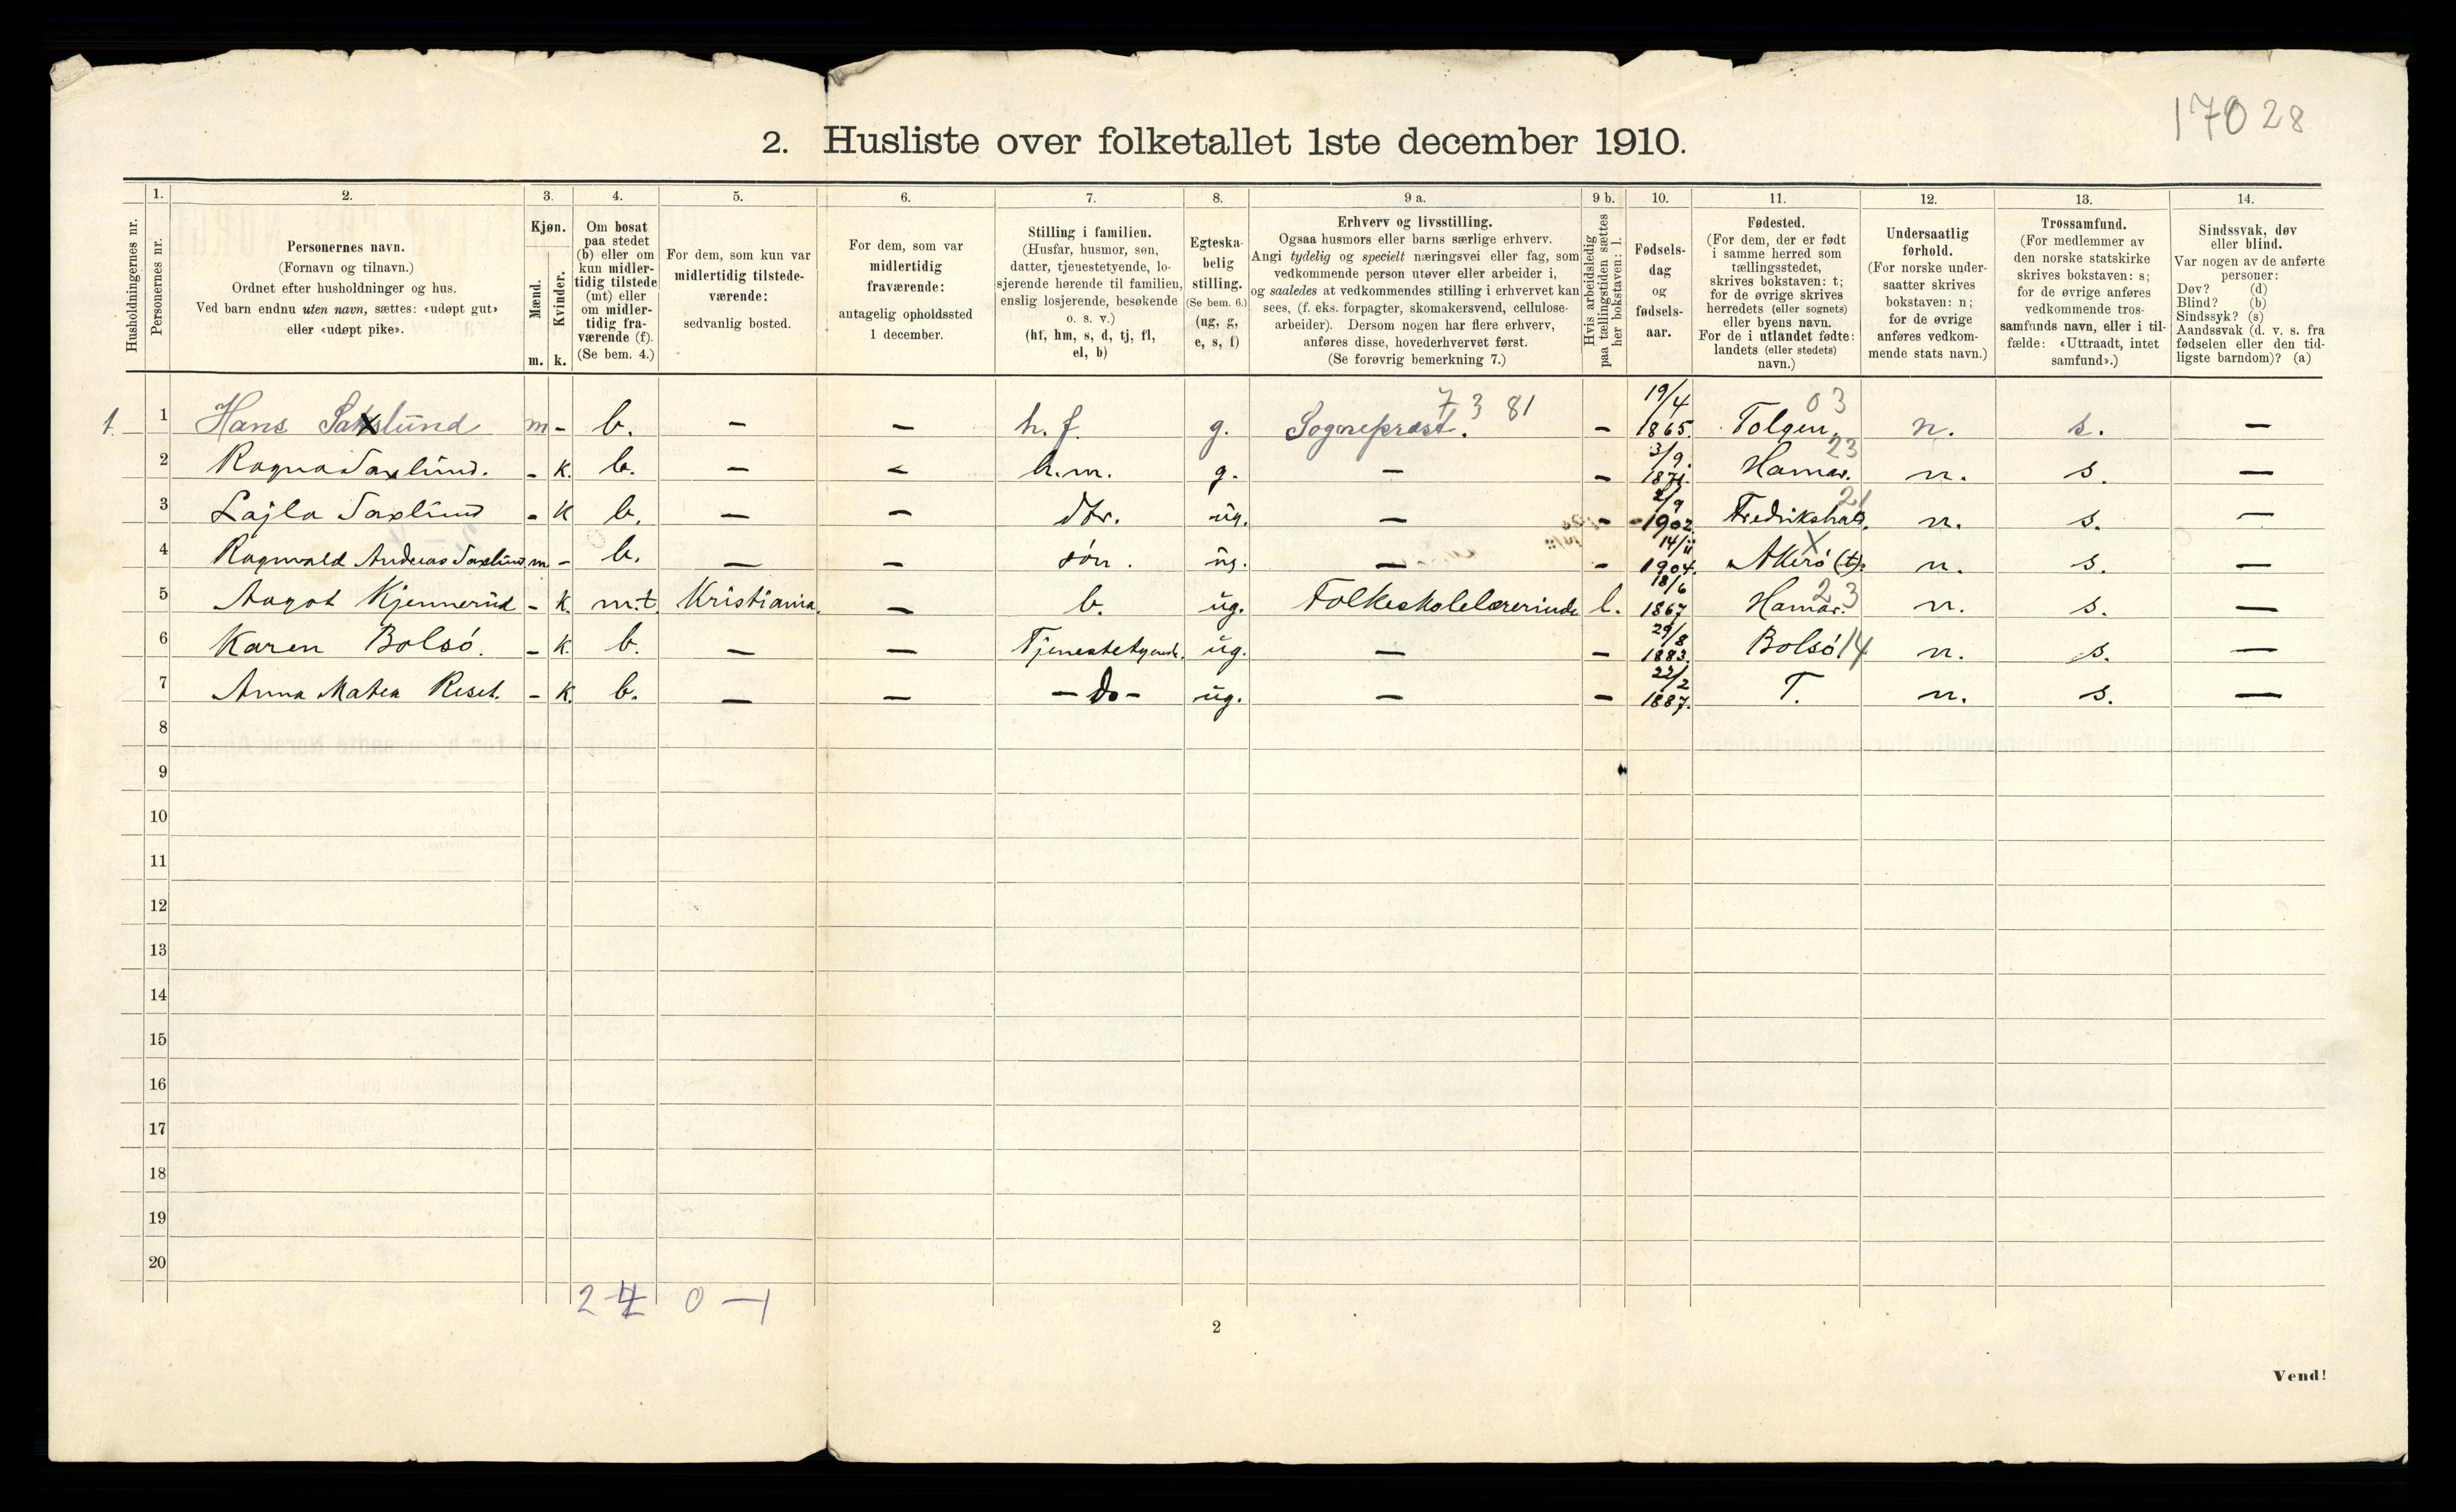 17028
2. Husliste over folketallet 1ste december 1910.
Husholdningernes nr.
1.
Personernes nr.
2.
Personernes navn.
(Fornavn og tilnavn.)
Ordnet efter husholdninger og hus.
Ved barn endnu uten navn, sættes: «udøpt gut»
eller «udøpt pike».
3.
Kjøn.
Mænd.
Kvinder.
m. k.
4.
Om bosat
paa stedet
(b) eller om
kun midler-
tidig tilstede
(mt) eller
om midler-
tidig fra-
værende (f).
(Se bem. 4.)
5.
For dem, som kun var
midlertidig tilstede-
værende:
sedvanlig bosted.
6.
For dem, som var
midlertidig
fraværende:
antagelig opholdssted
1 december.
7.
Stilling i familien.
(Husfar, husmor, søn,
datter, tjenestetyende, lo-
sjerende hørende til familien,
enslig losjerende, besøkende
o. s. v.)
(hf, hm, s, d, tj, fl,
el, b)
8.
Egteska-
belig
stilling.
(Se bem. 6.)
(ug, g,
e, s, f)
9 a.
Erhverv og livsstilling.
Ogsaa husmors eller barns særlige erhverv.
Angi tydelig og specielt næringsvei eller fag, som
vedkommende person utøver eller arbeider i,
og saaledes at vedkommendes stilling i erhvervet kan
sees, (f. eks. forpagter, skomakersvend, cellulose-
arbeider). Dersom nogen har flere erhverv,
anføres disse, hovederhvervet først.
(Se forøvrig bemerkning 7.)
9 b.
Hvis arbeidsledig
paa tællingstiden sættes
her bokstaven: l.
10.
Fødsels-
dag
og
fødsels-
aar.
11.
Fødested.
(For dem, der er født
i samme herred som
tællingsstedet,
skrives bokstaven: t;
for de øvrige skrives
herredets (eller sognets)
eller byens navn.
For de i utlandet fødte:
landets (eller stedets)
navn.)
12.
Undersaatlig
forhold.
(For norske under-
saatter skrives
bokstaven: n;
for de øvrige
anføres vedkom-
mende stats navn.)
13.
Trossamfund.
(For medlemmer av
den norske statskirke
skrives bokstaven: s;
for de øvrige anføres
vedkommende tros-
samfunds navn, eller i til-
fælde: «Uttraadt, intet
samfund».)
14.
Sindssvak, døv
eller blind.
Var nogen av de anførte
personer:
Døv? (d)
Blind? (b)
Sindssyk? (s)
Aandssvak (d. v. s. fra
fødselen eller den tid-
ligste barndom)? (a)
7 3 81 03
1. 1 Hans Saxlund m - b. — — h. f. g. Sogneprest. - 19/4 1865. Tolgen. n. s. —
23
2 Ragna Saxlund. - k. b. — — h.m. g. — - 3/9. 1871. Hamar. n. s. —
21
3 Lajla Saxlund - k b. — — dtr. ug. — - 2/9 1902 Fredrikshald. n. s. —
X
4 Ragnvald Andreas Saxlund m - b. — — søn. ug. — - 14/11 1904. Akerø (t). n. s. —
23
5 Aagot Kjennerud - k. m.t. Kristiania. — b. ug. Folkeskolelærerinde l. 18/6 1867 Hamar. n. s. —
6 Karen Bolsø. - k. b. — — Tjenestetyende. ug. — - 29/8 1883. Bolsø 14 n. s. —
7 Anna Matea Reset. - k. b. — — - do - ug. — - 22/2 1887. T. n. s. —
8
9
10
11
12
13
14
15
16
17
18
19
20
2-4 0-1
2
Vend!